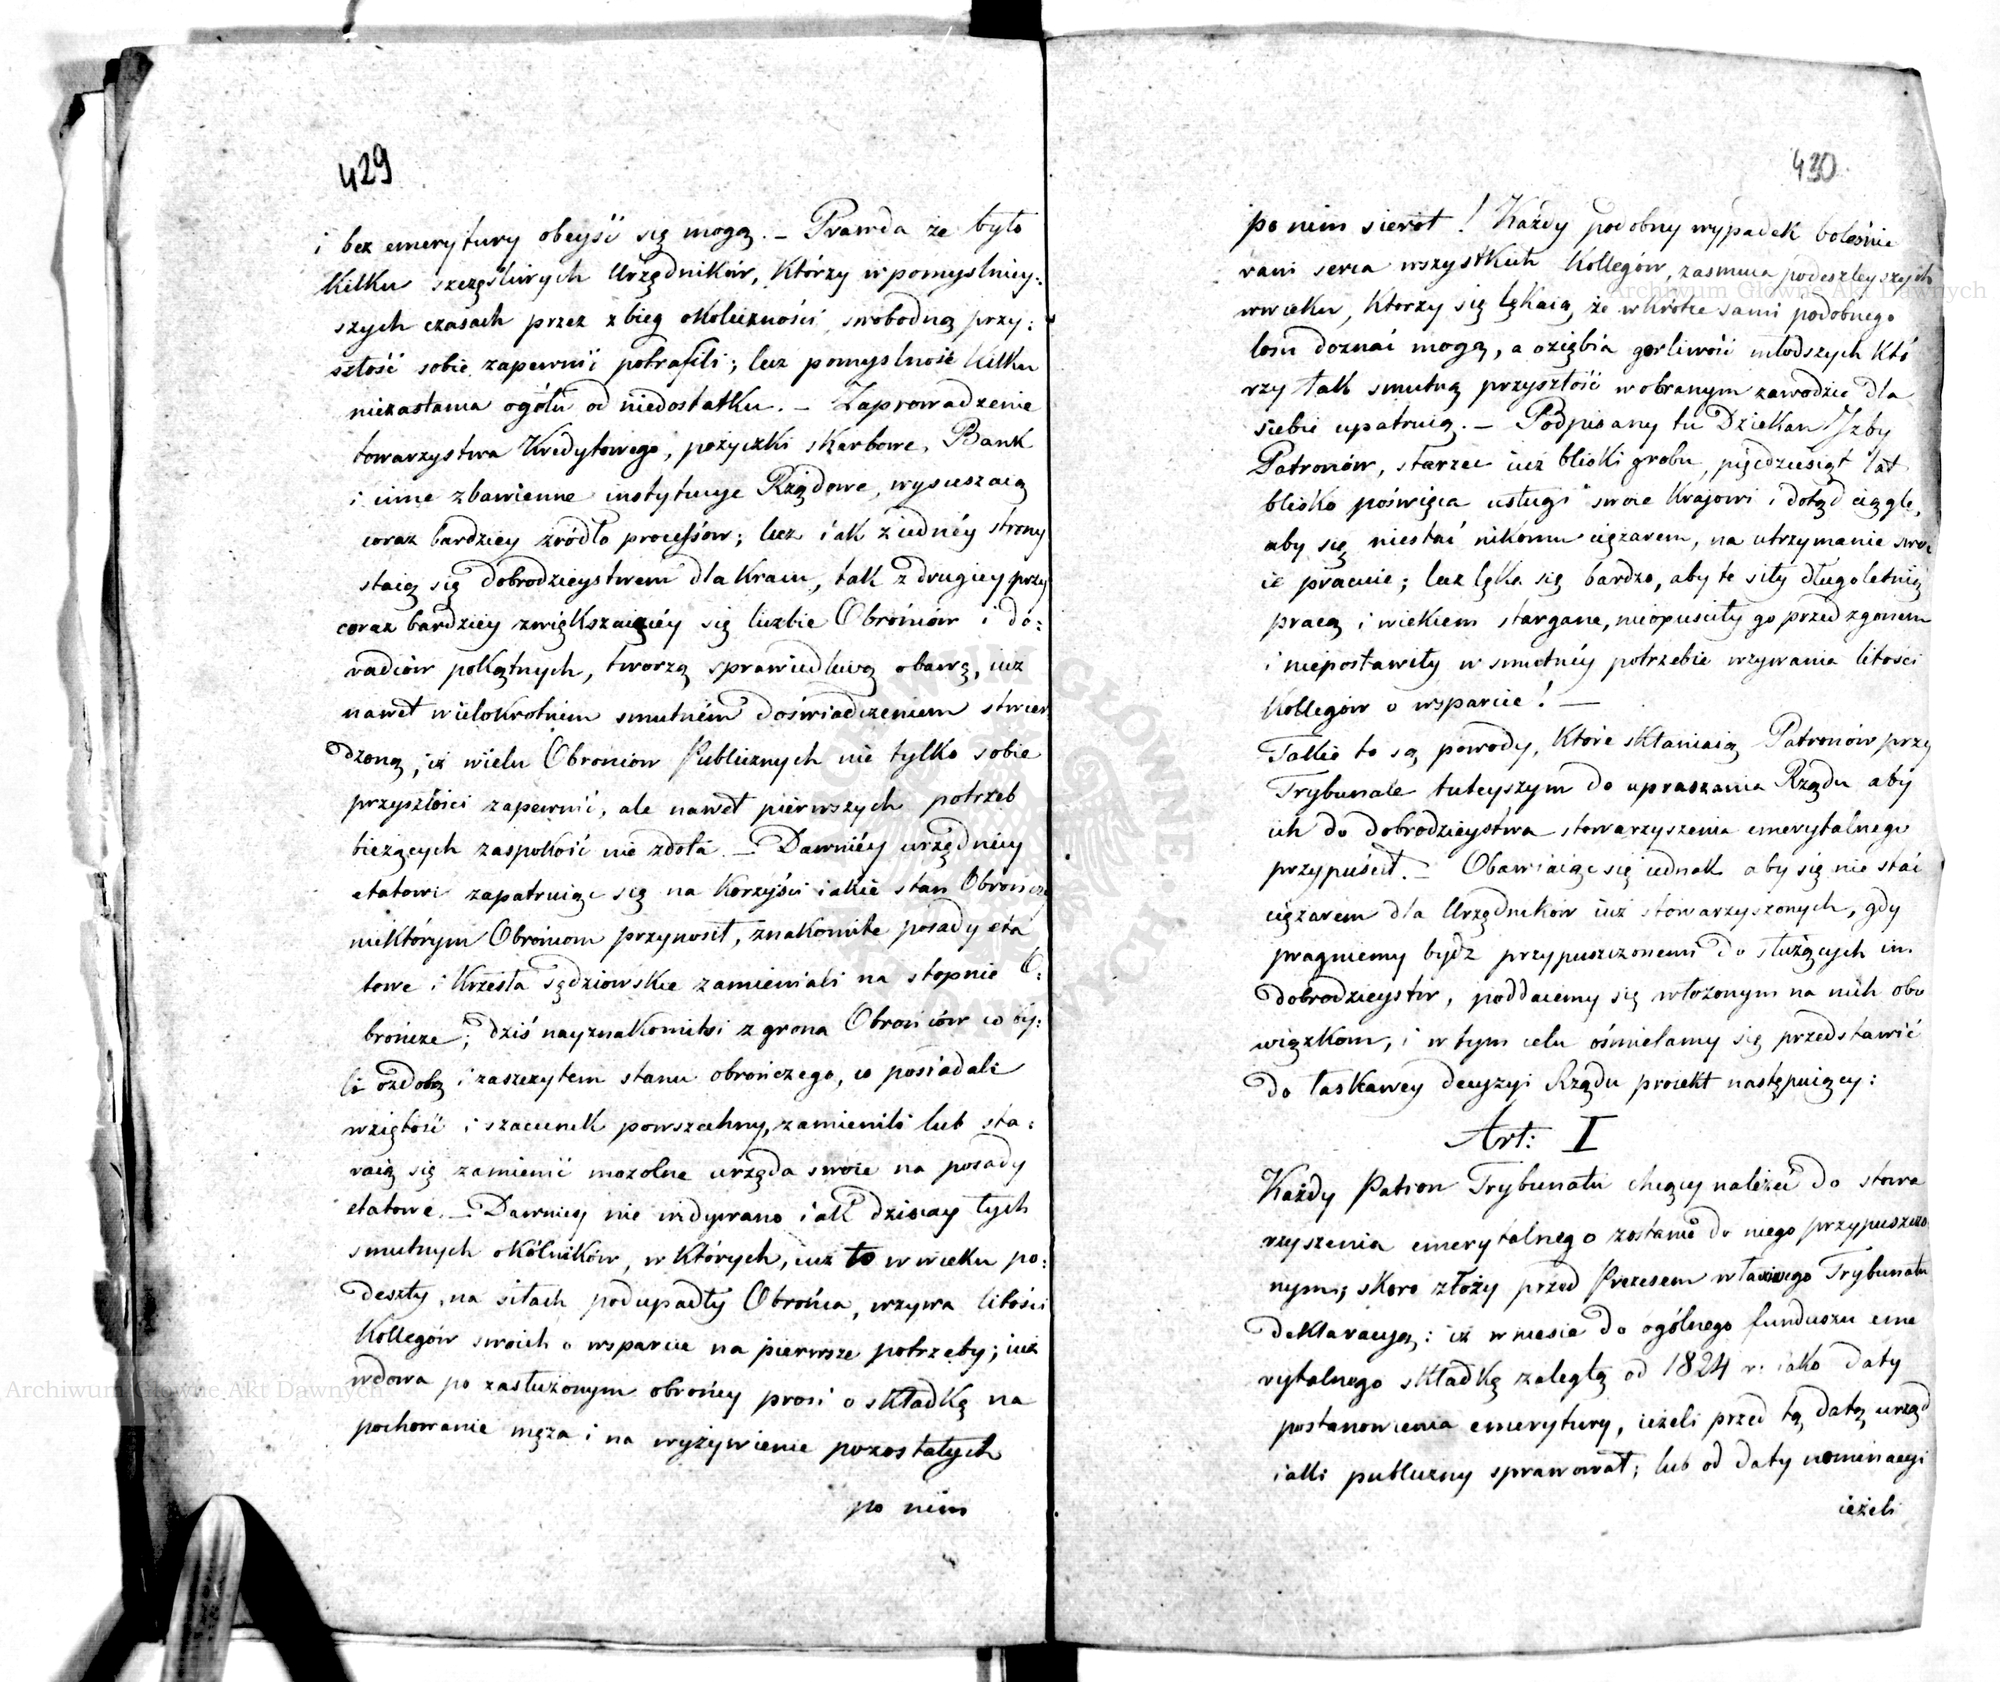 429
i bez emerytury obeyść się mogą. – Prawda że było
kilku szczęśliwych Urzędników, którzy w pomyslniey-
szych czasach przez zbieg okoliczności swobodną przy-
szłość sobie zapewnić potrafili; lecz pomyslność kilku
niezasłania ogółu od niedostatku. – Zaprowadzenie
towarzystwa Kredytowego, pożyczki skarbowe, Bank
i inne zbawienne instytucye Rządowe, wysuszaią
coraz bardziey źródło processów; lecz iak z iednéy strony
staią się dobrodzieystwem dla Kraiu, tak z drugiey przy
coraz bardziey zwiększaiącéy się liczbie Obrońców i do-
radców pokątnych, tworzą sprawiedliwą obawę, iuż
nawet wielokrotném smutném doświadczeniem stwier
dzoną, iż wielu Obrońców Publicznych nie tylko sobie
przyszłości zapewnić, ale nawet pierwszych potrzeb
bieżących zaspokoić nie zdoła. – Dawniéy urzędnicy
etatowi zapatruiąc się na korzyści iakie stan Obrończy
niektórym Obrońcom przynosił, znakomite posady eta
towe i krzesła Sędziowskie zamieniali na stopnie O-
brończe; dziś nayznakomitsi z grona Obrońców co by-
li ozdobą i zaszczytem stanu obrończego, co posiadali
wziętość i szacunek powszechny, zamienili lub sta-
raią się zamienić mozolne urzęda swoie na posady
etatowe. – Dawniey nie widywano iak dzisiay tych
smutnych okólników, w których, iuż to w wieku po-
deszły, na siłach podupadły Obrońca, wzywa litości
Kollegów swoich o wsparcie na pierwsze potrzeby; iuż
wdowa po zasłużonym obrońcy prosi o składkę na
pochowanie męża i na wyżywienie pozostałych
po nim
430
po nim sierot! Każdy podobny wypadek boleśnie
rani serca wszystkich Kollegów, zasmuca podeszleyszych
w wieku, którzy się lękaią, że wkrótce sami podobnego
losu doznać mogą, a oziębia gorliwość młodszych któ
rzy tak smutną przyszłość w obranym zawodzie dla
siebie upatruią. – Podpisany tu Dziekan Izby
Patronów, starzec iuż bliski grobu, pięćdziesiąt lat
blisko poświęca usługi swoie Krajowi i dotąd ciągle,
aby się niestać nikomu ciężarem, na utrzymanie swo
ie pracuie; lecz lęka się bardzo, aby te siły długoletnią
pracą i wiekiem stargane, nieopuściły go przed zgonem
i niepostawiły w smutnéy potrzebie wzywania litości
Kollegów o wsparcie! –
Takie to są powody, które skłaniaią Patronów przy
Trybunale tuteyszym do upraszania Rządu aby
ich do dobrodzieystwa stowarzyszenia emerytalnego
przypuścił. – Obawiaiąc się iednak aby się nie stać
ciężarem dla Urzędników iuż stowarzyszonych, gdy
pragniemy bydź przypuszczonemi do służących im
dobrodzieystw, poddaiemy się włożonym na nich obo
wiązkom, i w tym celu ośmielamy się przedstawić
do łaskawey decyzyi Rządu proiekt następuiący:
Art: I
Każdy Patron Trybunału chcący należeć do stowa
rzyszenia emerytalnego zostanie do niego przypuszczo
nym, skoro złoży przed Prezesem właściwego Trybunału
deklaracyą: iż wniesie do ogólnego funduszu eme
rytalnego składkę zaległą od 1824 r. iako daty
postanowienia emerytury, ieżeli przed tą datą urząd
iaki publiczny sprawował; lub od daty nominacyi
ieżeli
Archiwum Główne Akt Dawnych
Archiwum Główne Akt Dawnych